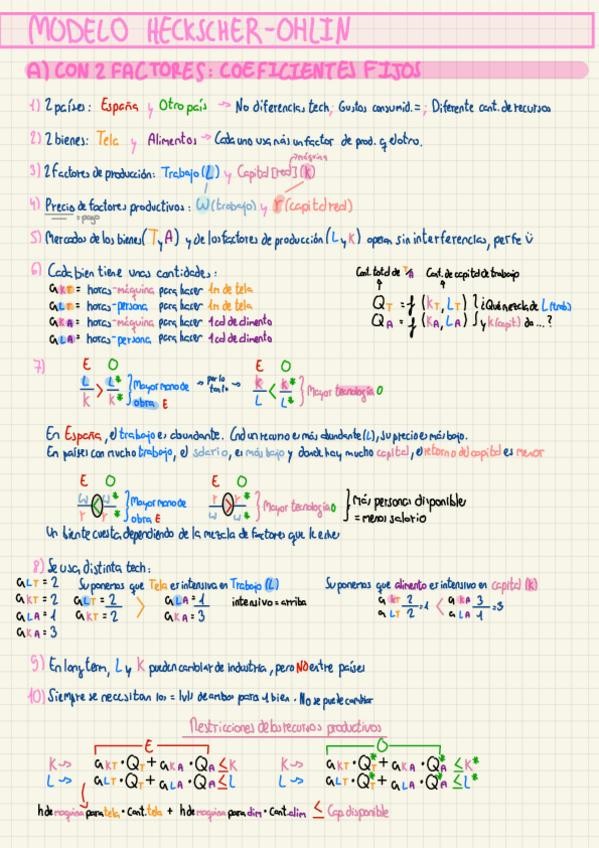 MODELO HECKSCHER-OHLIN
A) CON 2 FACTORES: COEFICIENTES FIJOS
1) 2 países: España y Otro país → No diferencias tech; Gustos consumid. =; Diferente cant. de recursos
2) 2 bienes: Tela y Alimentos → Cada uno usa más un factor de prod. q el otro.
máquina
3) 2 factores de producción: Trabajo (L) y Capital [real] (K)
4) Precio de factores productivos: w (trabajo) y r (capital real)
= pago
5) Mercados de los bienes (T y A) y de los factores de producción (L y K) operan sin interferencias, perfe
6) Cada bien tiene unas cantidades:
Cant. total de T/A Cant. de capital de trabajo
aKT = horas-máquina para hacer 1m de tela
aLT = horas-persona para hacer 1m de tela
aKA = horas-máquina para hacer 1cal de alimento
aLA = horas-persona para hacer 1cal de alimento
QT = f (KT, LT)
QA = f (KA, LA)
¿Qué mezcla de L (trab)
y K (capit) da ...?
7) E O E O
L/K > L*/K* Mayor mano de obra E → por lo tanto → K/L < K*/L* Mayor tecnología O
En España, el trabajo es abundante. Cnd un recurso es más abundante (L), su precio es más bajo.
En países con mucho trabajo, el salario, es más bajo y donde hay mucho capital, el retorno del capital es menor
E O E O
w/r < w*/r* Mayor mano de obra E r/w > r*/w* Mayor tecnología O
Más personas disponible
= menos salario
Un bien te cuesta dependiendo de la mezcla de factores que le eches
8) Se usa distinta tech:
aLT = 2
aKT = 2
aLA = 1
aKA = 3
Suponemos que Tela es intensiva en Trabajo (L)
aLT = 2 / aKT = 2 > aLA = 1 / aKA = 3 intensivo = arriba
Suponemos que alimento es intensivo en capital (K)
aKT 2 / aLT 2 = 1 < aKA 3 / aLA 1 = 3
9) En long term, L y K pueden cambiar de industria, pero NO entre países
10) Siempre se necesitan los = lvls de ambos para 1 bien. No se puede cambiar
Restricciones de los recursos productivos
E O
K → aKT · QT + aKA · QA ≤ K
L → aLT · QT + aLA · QA ≤ L
K → aKT · QT* + aKA · QA* ≤ K*
L → aLT · QT* + aLA · QA* ≤ L*
h de maquina para tela · Cant. tela + h de maquina para alim · Cant. alim ≤ Cap. disponible